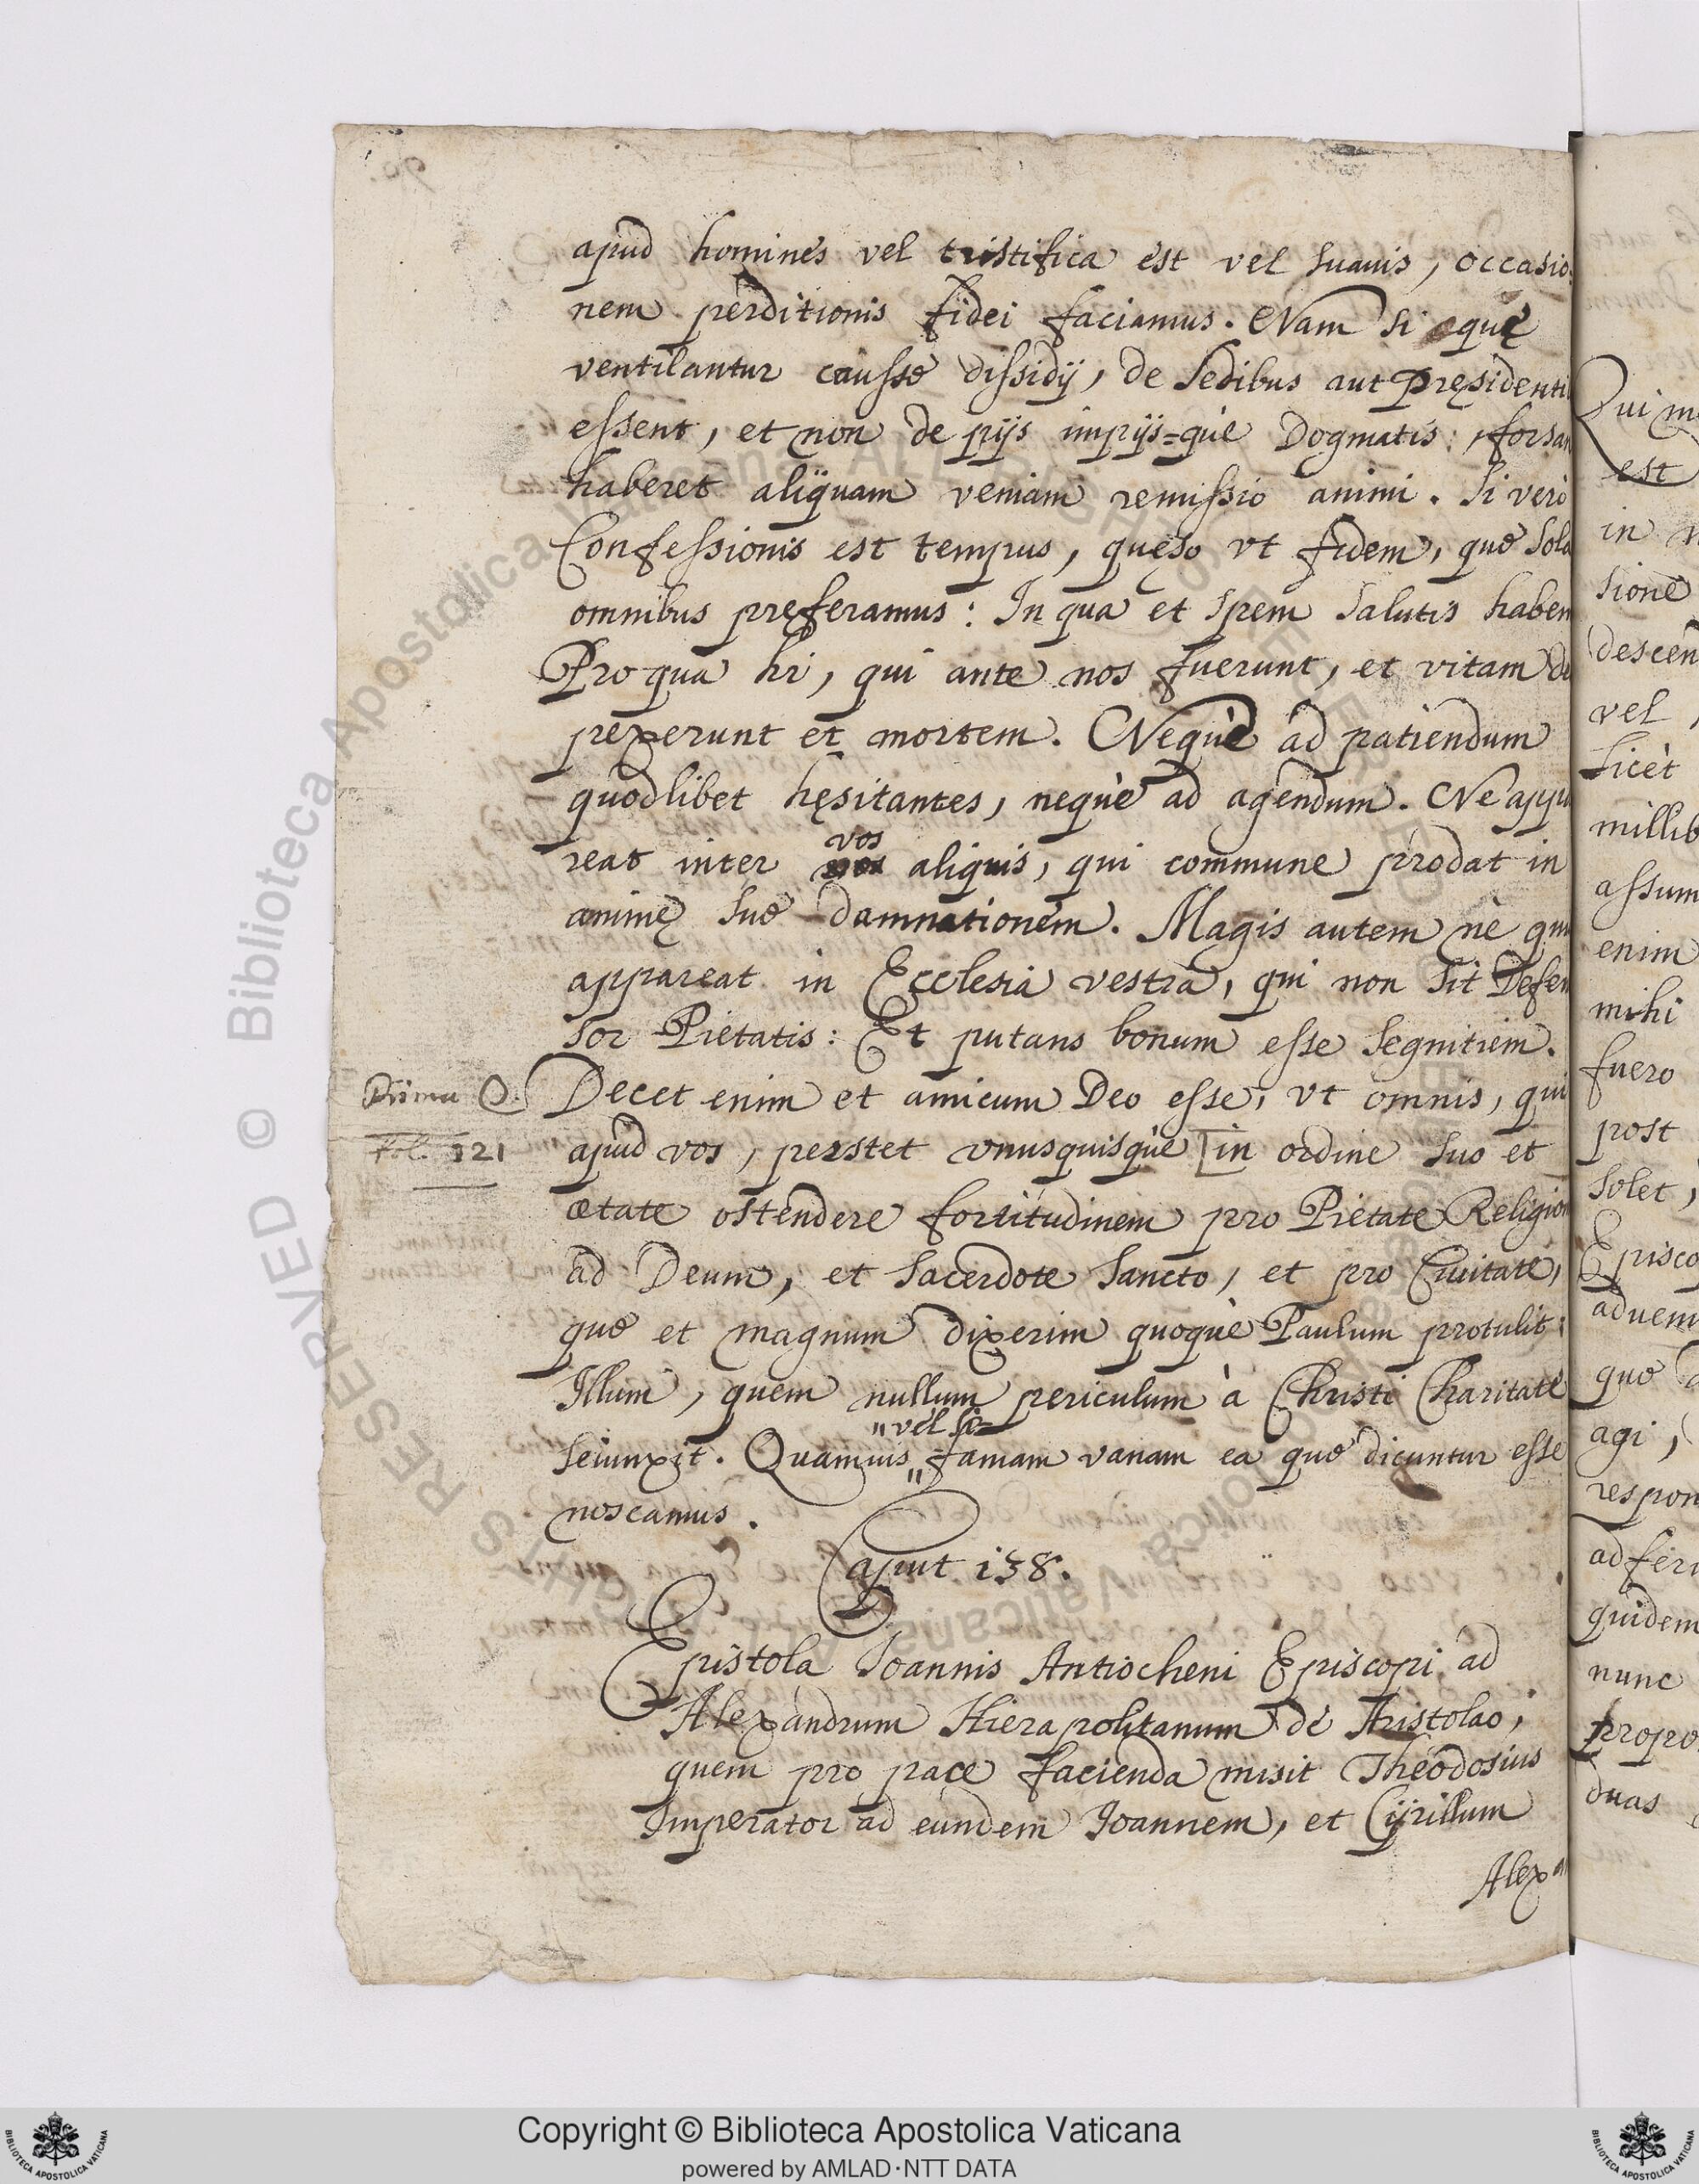 apud homines vel tristifica est vel suauis, occasio
nem perditionis fidei faciamus. Nam si quę
ventilantur caussæ dissidÿ, de sedibus aut pręsidenti
essent, et non de pÿs impÿs=què Dogmatis: forsan
haberet aliquam veniam remissio animi. Si verò
Confessionis est tempus, quęso vt fidem, quæ sola
omnibus preferamus: In qua et spem salutis haben
Pro qua hi, qui ante nos fuerunt, et vitam de
pexerunt et mortem. Nequè ad patiendum
quodlibet hęsitantes, nequè ad agendum. Ne appa
reat inter vos aliquis, qui commune prodat in
animę suæ damnationem. Magis autem ne qui
appareat in Ecclesia vestra, qui non sit Defen
sor Pietatis: Et putans bonum esse segnitiem.
Decet enim et amicum Deo esse, vt omnis, qui
fol. 321
apud vos, perstet vnusquisquè [in ordine suo et
ætate ostendere fortitudinem pro Pietate Religion
ad Deum, et sacerdote sancto, et pro Ciuitate,
quæ et magnum dixerim quoquè Paulum protulit:
Illum, quem nullum periculum à Christi Charitate
"vel si=
seiunxit. Quamuis " famam vanam ea quæ dicuntur esse
noscamus.
Caput 138.
Epistola Ioannis Antiocheni Episcopi ad
Alexandrum Hierapolitanum de Aristolao,
quem pro pace facienda misit Theodosius
Imperator ad eundem Ioannem, et Cÿrillum
Alexan
Qui m
est
in
sione
descen
vel,
licèt
millib
assum
enim
mihi
fuero
post
solet,
Episco
aduem
quæ
agi,
respon
adfer
quidem
nunc
propo
duas
© Biblioteca Apostolica Vaticana
RESERVED
Copyright © Biblioteca Apostolica Vaticana
powered by AMLAD·NTT DATA
BIBLIOTECA APOSTOLICA VATICANA
BIBLIOTECA APOSTOLICA VATICANA